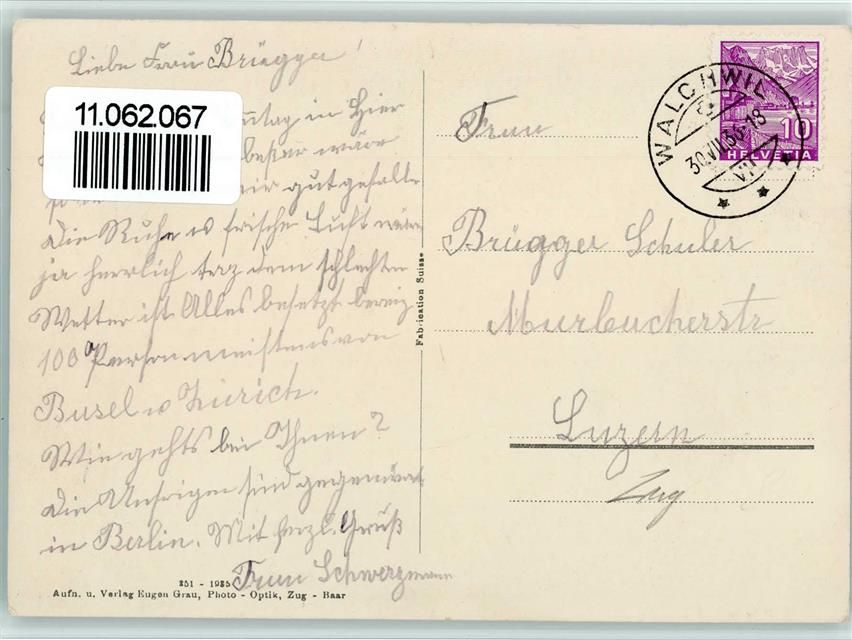 Liebe Frau Brügger!
11.062.067
tag in Hier
besser wäre
mir gut gefallt
Die Ruhe u frische Luft wäre
ja herrlich traz dem schlechten
Wetter ist Alles besetzt
100 Person meistens von
Basel u Zürich.
Wie gehts bei Ihnen?
Die Unsrigen sind gegenwärt
in Berlin. Mit herzl. Gruß
Frau Schwerzmann
351 - 1935
Aufn. u. Verlag Eugen Grau, Photo - Optik, Zug - Baar
Fabrication Suisse
WALCHWIL
30.VII.36-18
VII
10
HELVETIA
Frau
Brügger Schuler
Murbacherstr
Luzern
Zug